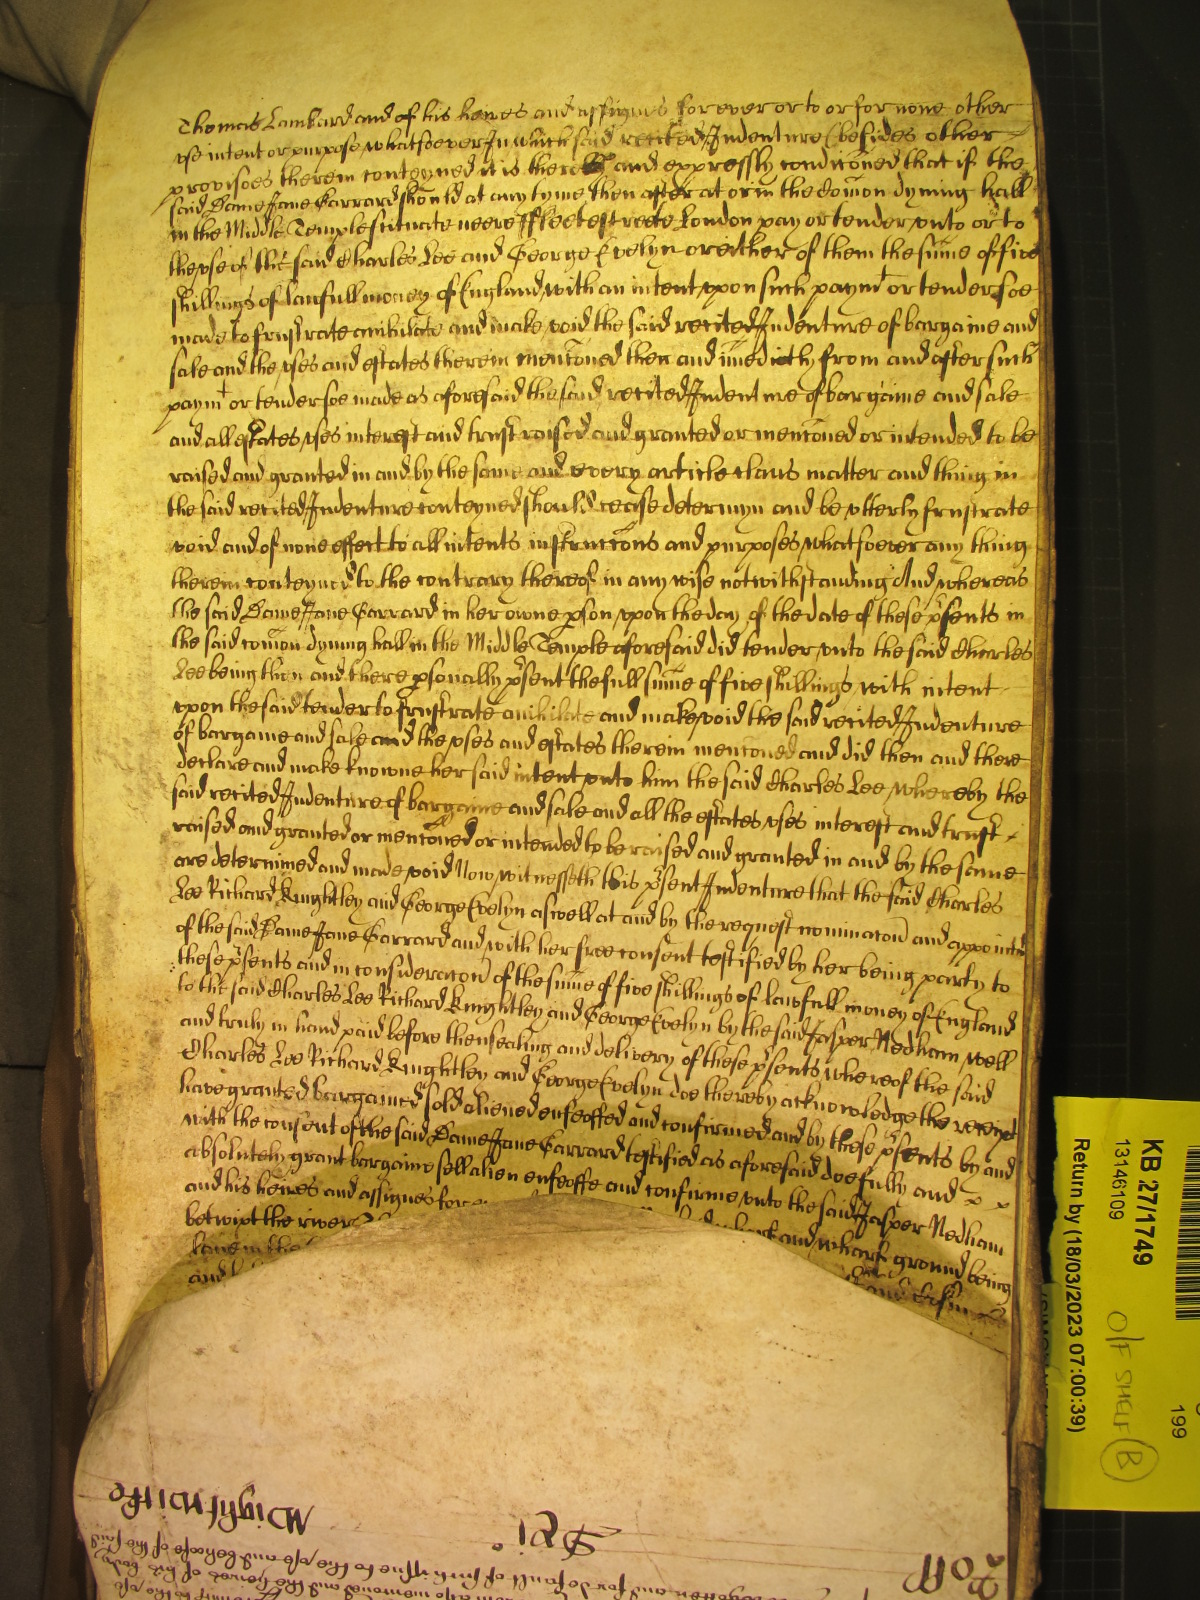 Thomas Lambard and of his heires and assignes for ever or to or for none other
vse intent or purpose whatsoever In which said recited Indenture (besides other
provisoes therein conteyned it is there and expressly condiconed that if the
said Dame Jane Garrard should at any tyme then after at or in the comon dyning hall
in the Middle Temple situate neere Fleetestreete London pay or tender vnto or to
the vse of the said Charles Lee and George Evelyn or either of them the sume of five
shillings of lawfull money of England with an intent vpon such paymt or tender soe
made to frustrate anihilate and make void the said recited Indenture of bargaine and
sale and the vses and estates therein menconed then and imediatly from and after such
paymt or tender soe made as aforesaid the said recited Indenture of bargaine and sale
and all estates vses interest and trust raised and granted or menconed or intended to be
raised and granted in and by the same and every article claus matter and thing in
the said recited Indenture conteyned should cease determyn and be vtterly frustrate
void and of none effect to all intents instruccons and purposes whatsoever any thing
therein conteyned to the contrary thereof in any wise notwithstanding And whereas
the said Dame Jane Garrard in her owne pson vpon the day of the date of these psents in
the said comon dyning hall in the Middle Temple aforesaid did tender vnto the said Charles
Lee being then and there psonally psent the full sume of five shillings with intent
vpon the said tender to frustrate anihilate and make void the said recited Indenture
of bargaine and sale and the vses and estates therein menconed and did then and there
declare and make knowne her said intent vnto him the said Charles Lee whereby the
said recited Indenture of bargaine and sale and all the estates vses interest and trust
raised and granted or menconed or intended to be raised and granted in and by the same
are determined and made void Now witnesseth this psent Indenture that the said Charles
Lee Richard Knightley and George Evelyn aswell at and by the request nominacon and appointmt
of the said Dame Jane Garrard and with her free consent testified by her being party to
these psents and in consideracon of the sume of five shillings of lawfull money of England
to the said Charles Lee Richard Knightley and George Evelyn by the said Jasper Nedham well
and truly in hand paid before thensealing and delivery of these psents whereof the said
Charles Lee Richard Knightley and George Evelyn doe thereby acknowledge the receipt
have granted bargained sold aliened enfeoffed and confirmed and by these psents by and
with the consent of the said Dame Jane Garrard testified as aforesaid doe fully and
absolutely grant bargaine sell alien enfeoffe and confirme vnto the said Jasper Nedham
and his heires and assignes for
betwixt the river and wharfe ground being
lane in the
and
KB 27/1749
13146109
Return by (18/03/2023 07:00:39)
O/F SHELF B
199
Mightwike
Sri
of such issue to the vse and behoofe of the said